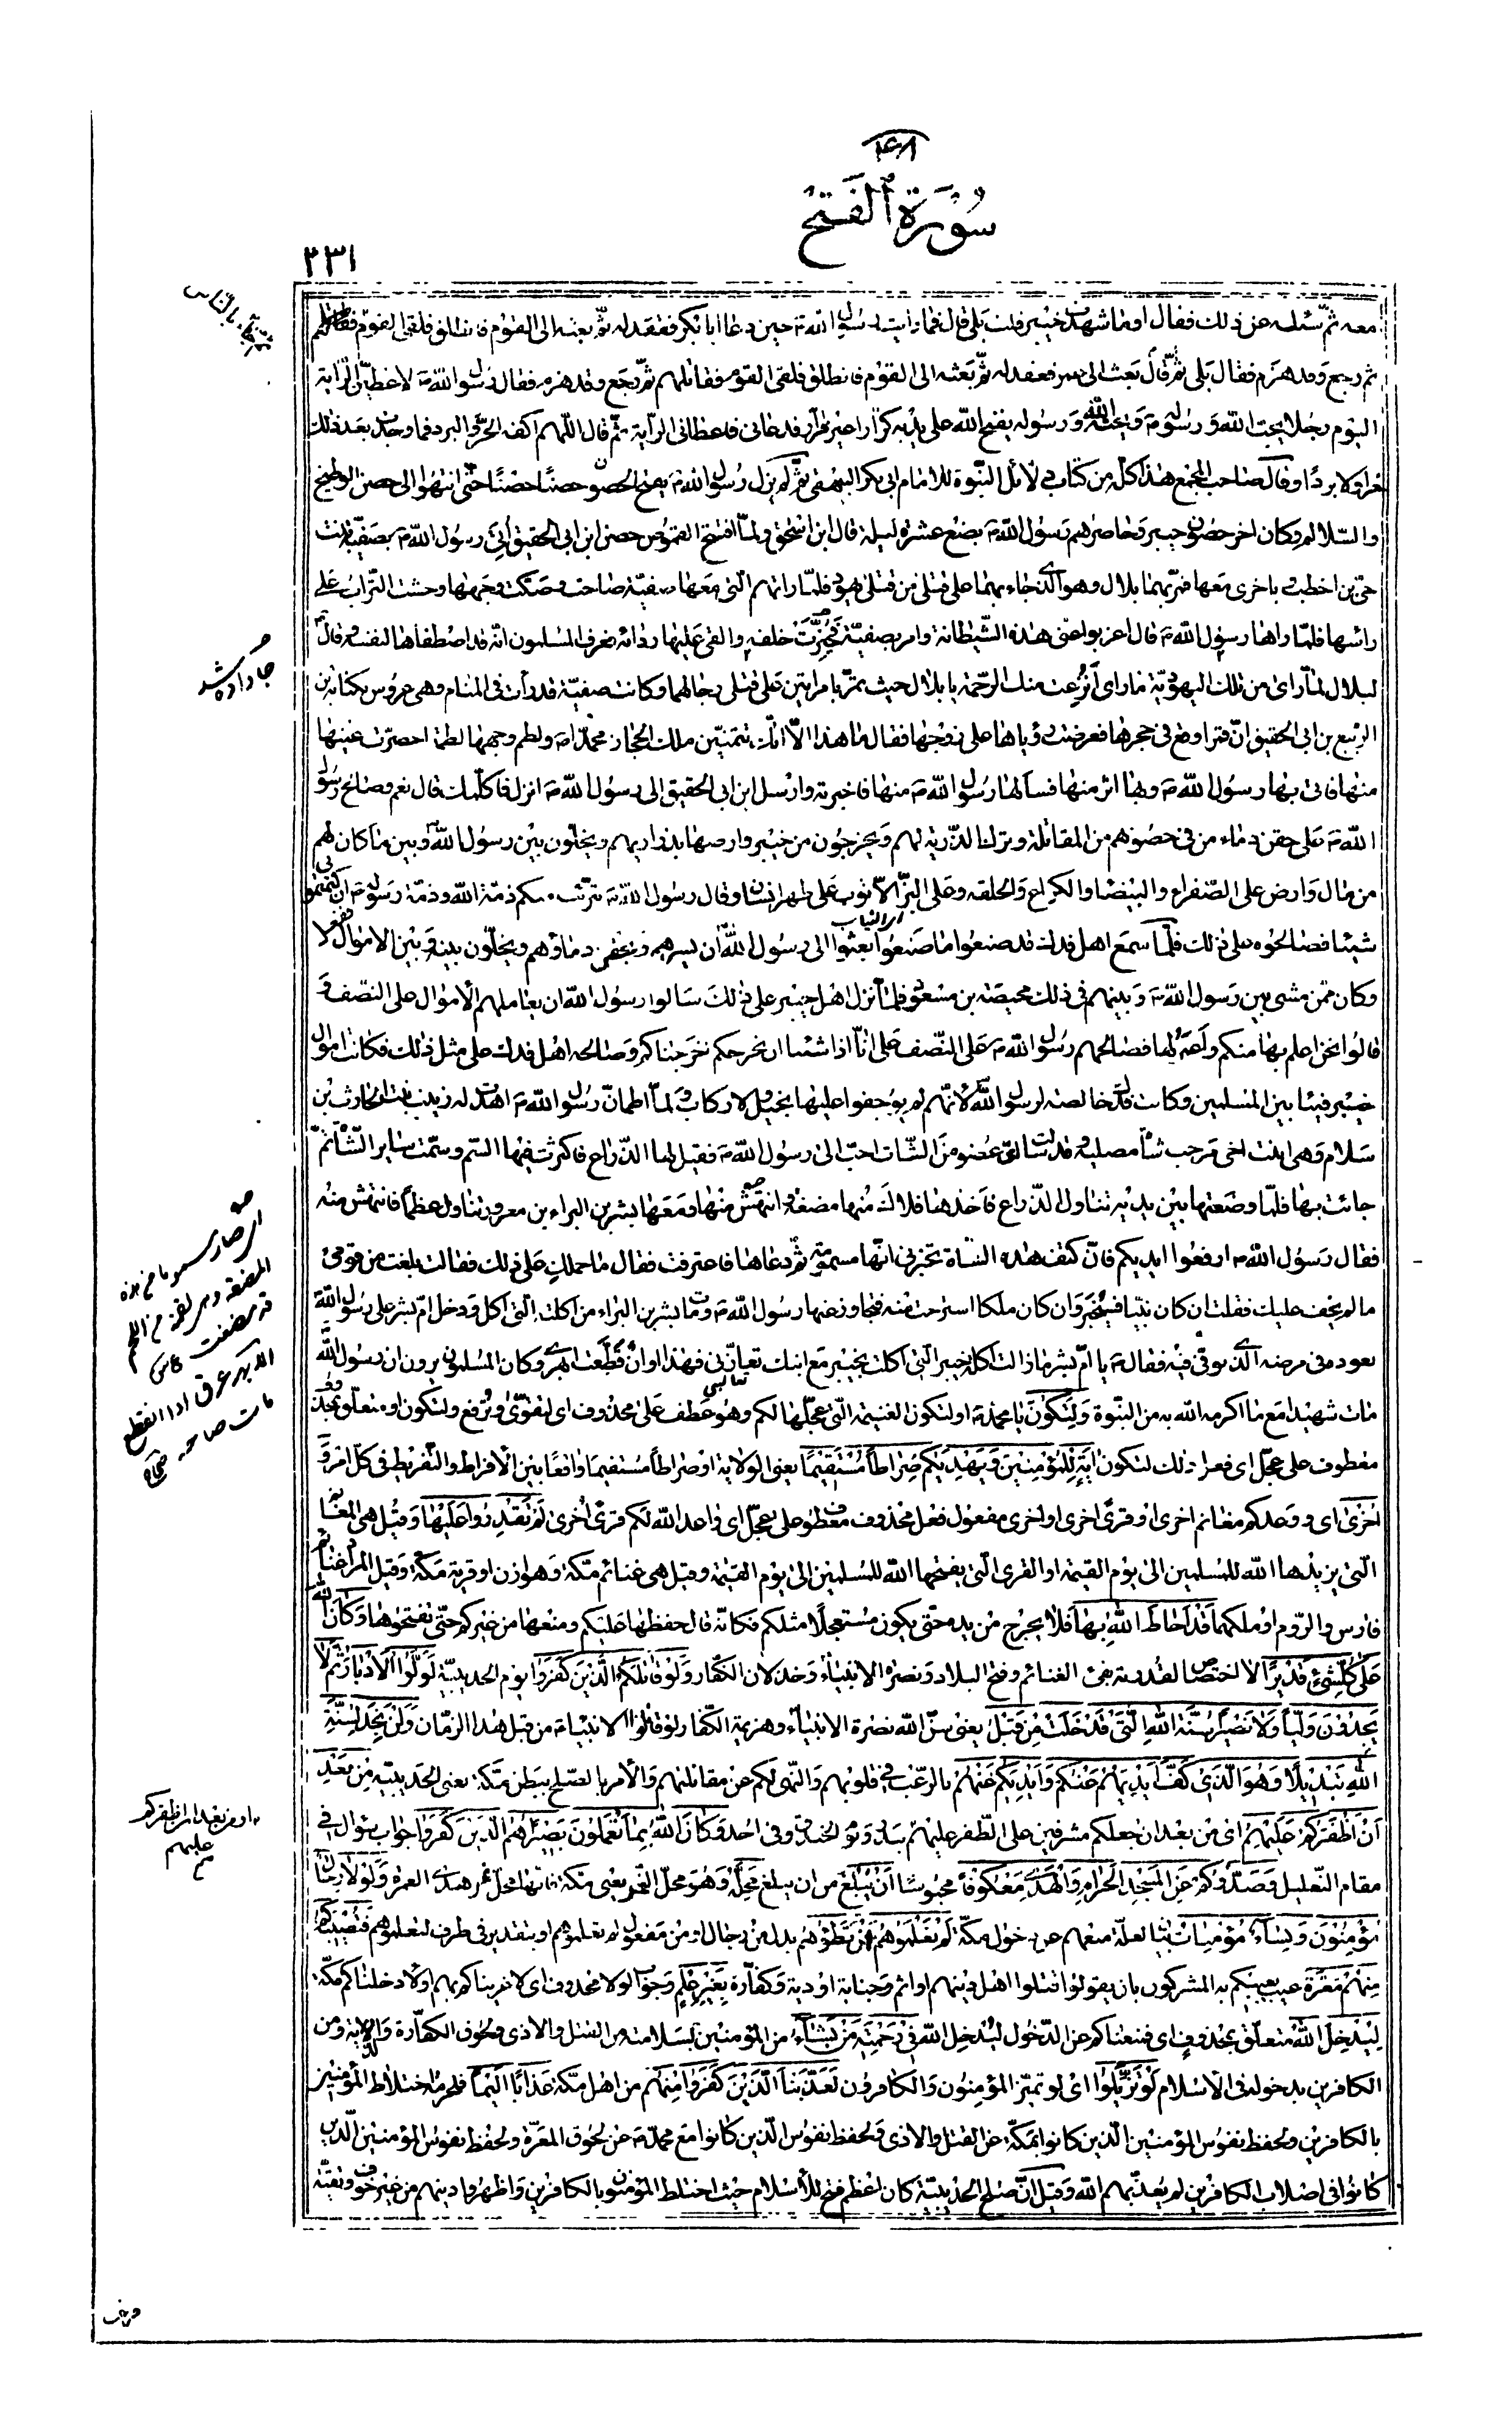 ۴۸
سُوْرَةُ الفَتْحِ
٢٣١
معه ثمّ سئله عن ذلك فقال اوما شهدت خيبر قلت بلى قال فما رايت رسول الله ص حين دعا ابا بكر فعقد له ثمّ بعثه الى القوم فانطلق فلقى القوم
ثم رجع وقد هزم فقال بلى ثمّ قال بعث الى عمر فعقد له ثمّ بعثه الى القوم فانطلق فلقى القوم فقاتلهم ثم رجع وقد هزم فقال رسول الله ص لاعطينّ الراية
اليوم رجلا يحبّ الله ورسوله ويحبّه الله ورسوله يفتح الله على يديه كرّارا غير فرّار فدعانى فاعطانى الراية ثمّ قال اللهم اكفه الحرّ والبرد فما وجدت بعد ذلك
حرا ولا بردًا وقال صاحب المجمع هذا كلّه من كتاب دلائل النّبوة للامام ابى بكر البيهقى ثمّ لم يزل رسول الله ص يفتح الحصون حصنًا حصنًا حتّى انتهوا الى حصن الوطيح
والسّلالم وكان اخر حصون خيبر وحاصرهم رسول الله ص بضع عشرة ليلة قال ابن اسحق ولمّا افتتح القموص حصن ابن ابى الحقيق اُتِىَ رسول الله ص بصفيّة بنت
حىّ بن اخطب وباخرى معها فمرّ بهما بلال وهو الّذى جاء بهما على قتلى من قتلى يهود فلمّا راتهم الّتى معها صفيّة صاحت وصكّت وجهها وحثت التّراب على
رأسها فلمّا راها رسول الله ص قال اعزبوا عنّى هذه الشّيطانة وامر بصفيّة فحيزت خلفه والقى عليها ردائه فعرف المسلمون انّه قد اصطفاها لنفسه وقال
لبلال لمّا رأى من تلك اليهوديّة ما رأى أنُزعت منك الرّحمة يا بلال حيث تمرّ بامرأتين على قتلى رجالهما وكانت صفيّة قد رأت فى المنام وهى عروس بكنانة بن
الرّبيع بن ابى الحقيق انّ قمرا وقع فى حجرها فعرضت رؤياها على زوجها فقال ما هذا الّا انّك تتمنّين ملك الحجاز محمّدا ص ولطم وجهها لطمة اخضرّت عينها
منها فاتى بها رسول الله ص وبها اثر منها فسألها رسول الله ص منها فاخبرته وارسل ابن ابى الحقيق الى رسول الله ص انزل فاكلّمك قال نعم وصالح رسول
الله ص على حقن دماء من فى حصونهم من المقاتلة وترك الذّرية لهم ويخرجون من خيبر وارضها بذراريهم ويخلّون بين رسول الله ص وبين ما كان لهم
من مال وارض على الصّفراء والبيضاء والكراع والحلقة وعلى البزّ الّا ثوب على ظهر انسان وقال رسول الله ص برئت منكم ذمّة الله وذمّة رسوله ان كتمتمونى
اى الثياب
شيئا فصالحوه على ذلك فلمّا سمع اهل فدك قد صنعوا ما صنعوا بعثوا الى رسول الله ص ان يسيرهم ويحقن دماؤهم ويخلّون بينه وبين الاموال ففعل
وكان ممّن مشى بين رسول الله ص وبينهم فى ذلك محيصة بن مسعود فلمّا نزل اهل خيبر على ذلك سالوا رسول الله ان يعاملهم الاموال على النّصف و
قالوا نحن اعلم بها منكم واعمر لها فصالحهم رسول الله ص على النّصف على انّا اذا شئنا ان نخرجكم اخرجناكم وصالحه اهل فدك على مثل ذلك فكانت اموال
خيبر فيئا بين المسلمين وكانت فدك خالصة لرسول الله ص لانّهم لم يوجفوا عليها بخيل ولا ركاب ولمّا اطمأنّ رسول الله ص اهدت له زينب بنت الحارث بن
سلام وهى ابنت اخى مرحب شاة مصلية وقد سألت اىّ عضو من الشّاة احبّ الى رسول الله ص فقيل لها الذّراع فاكثرت فيها السّم وسمّت سائر الشّاة ثمّ
جائت بها فلمّا وضعتها بين يديه تناول الذّراع فاخذها فلاك منها مضغة وانتهش منها ومعها بشر بن البراء بن معرور تناول عظما فانتهش منه
فقال رسول الله ص ارفعوا ايديكم فانّ كتف هذه الشّاة تخبرنى انّها مسمومة ثمّ دعاها فاعترفت فقال ما حملك على ذلك فقالت بلغت من قومى
ما لم يخف عليك فقلت ان كان نبيّا فسيخبر وان كان ملكا استرحت منه فتجاوز عنها رسول الله ص ومات بشر بن البراء من اكلته الّتى اكل ودخل امّ بشر على رسول الله ص
تعوده فى مرضه الّذى توفّى فيه فقال ص يا امّ بشر ما زالت اكلة خيبر الّتى اكلت بخيبر مع ابنك تعاودنى فهذا اوان قَطَعَت ابهرى وكان المسلمون يرون ان رسول الله
مات شهيدا مع ما اكرمه الله به من النّبوة وَلِتَكُونَ يا محمّد ص او لتكون الغنيمة الّتى عجّلها لكم وهو عطف على محذوف اى لتقوّى وترفع ولتكون او متعلّق بمحذوف
معطوف على عجّل اى فعل ذلك لتكون اٰيَةً لِلْمُؤْمِنِيْنَ وَيَهْدِيَكُمْ صِرَاطًا مُسْتَقِيْمًا يعنى الولاية او صراطًا مستقيما واقعًا بين الافراط والتّفريط فى كلّ امر وَ
اُخْرٰى اى ووعدكم مغانم اخرى او قرىً اخرى او لاخرى مفعول فعل محذوف معطوف على عجّل اى واعد الله لكم قرىً اخرى لَمْ تَقْدِرُوا عَلَيْهَا وقيل هى الغنائم
الّتى يزيدها الله للمسلمين الى يوم القيمة او القرى الّتى يفتحها الله للمسلمين الى يوم القيمة وقيل هى غنائم مكّة وهوازن او قرية مكّة وقيل المراد غنائم
فارس والرّوم او ملكهما قَدْ اَحَاطَ اللهُ بِهَا فلا يخرج من يده حتّى يكون مستعجلًا مثلكم فكانّه قال حفظها عليكم ومنعها من غيركم حتّى تفتحوها وَكَانَ اللهُ
عَلٰى كُلِّ شَىْءٍ قَدِيْرًا لا اختصاص لقدرته بفتح الغنائم وفتح البلاد ونصرة الانبياء وخذلان الكفّار وَلَوْ قَاتَلَكُمُ الَّذِيْنَ كَفَرُوا يوم الحديبيّة لَوَلَّوُا الْاَدْبَارَ ثُمَّ لَا
يَجِدُوْنَ وَلِيًّا وَلَا نَصِيْرًا سُنَّةَ اللهِ الَّتِى قَدْ خَلَتْ مِنْ قَبْلُ يعنى سنّ الله نصرة الانبياء وهزيمة الكفّار لو قاتلوا الانبياء من قبل هذا الزّمان وَلَنْ تَجِدَ لِسُنَّةِ
اللهِ تَبْدِيْلًا وَهُوَ الَّذِى كَفَّ اَيْدِيَهُمْ عَنْكُمْ وَاَيْدِيَكُمْ عَنْهُمْ بالرّعب فى قلوبهم والنّهى لكم عن مقاتلتهم والامر بالصّلح بِبَطْنِ مَكَّةَ يعنى الحديبيّة مِنْ بَعْدِ
اَنْ اَظْفَرَكُمْ عَلَيْهِمْ اى من بعد ان جعلكم مشرفين على الظّفر عليهم ببدر ويوم الخندق وفى احد وَكَانَ اللهُ بِمَا تَعْمَلُونَ بَصِيْرًا هُمُ الَّذِيْنَ كَفَرُوا جواب سؤال فى
مقام التّعليل وَصَدُّوْكُمْ عَنِ الْمَسْجِدِ الْحَرَامِ وَالْهَدْىَ مَعْكُوفًا محبوسًا اَنْ يَبْلُغَ من ان يبلغ مَحِلَّهُ وهو محلّ النّحر يعنى مكّة فانّها محلّ نحر هدى العمرة وَلَوْلَا رِجَالٌ
مُؤْمِنُونَ وَنِسَاءٌ مُؤْمِنَاتٌ بيان لعلّة منعهم عن دخول مكّة لَمْ تَعْلَمُوهُمْ اَنْ تَطَؤُهُمْ بدل من رجال او من مفعول لم تعلموهم او بتقدير فى ظرف لتعلموهم فَتُصِيْبَكُمْ
مِنْهُمْ مَعَرَّةٌ عيب يعيبكم به المشركون بان يقولوا قتلوا اهل دينهم او اثم وجناية او دية وكفّارة بِغَيْرِ عِلْمٍ وجواب لولا محذوف اى لاغريناكم بهم او لادخلناكم مكّة
لِيُدْخِلَ اللهُ متعلّق بمحذوف اى فمنعناكم عن الدّخول ليدخل الله فِى رَحْمَتِهِ مَنْ يَشَاءُ من المؤمنين بسلامته من القتل والاذى ولحوق الكفّارة والدّية ومن
الكافرين بدخوله فى الاسلام لَوْ تَزَيَّلُوا اى لو تميّز المؤمنون والكافرون لَعَذَّبْنَا الَّذِيْنَ كَفَرُوا مِنْهُمْ من اهل مكّة عَذَابًا اَلِيْمًا فلحرمة اختلاط المؤمنين
بالكافرين ولحفظ نفوس المؤمنين الّذين كانوا بمكّة عن القتل والاذى ولحفظ نفوس الّذين كانوا مع محمّد ص عن لحوق المعرّة ولحفظ نفوس المؤمنين الّذين
كانوا فى اصلاب الكافرين لم يعذّبهم الله وقيل انّ صلح الحديبيّة كان اعظم فتح للاسلام حيث اختلط المؤمنون بالكافرين واظهروا دينهم من غير خوف وتقيّة
جا داده شد
المضغة
الابهر عرق اذا انقطع
مات صاحبه صحاح
او من بعد ان اظفركم
عليهم